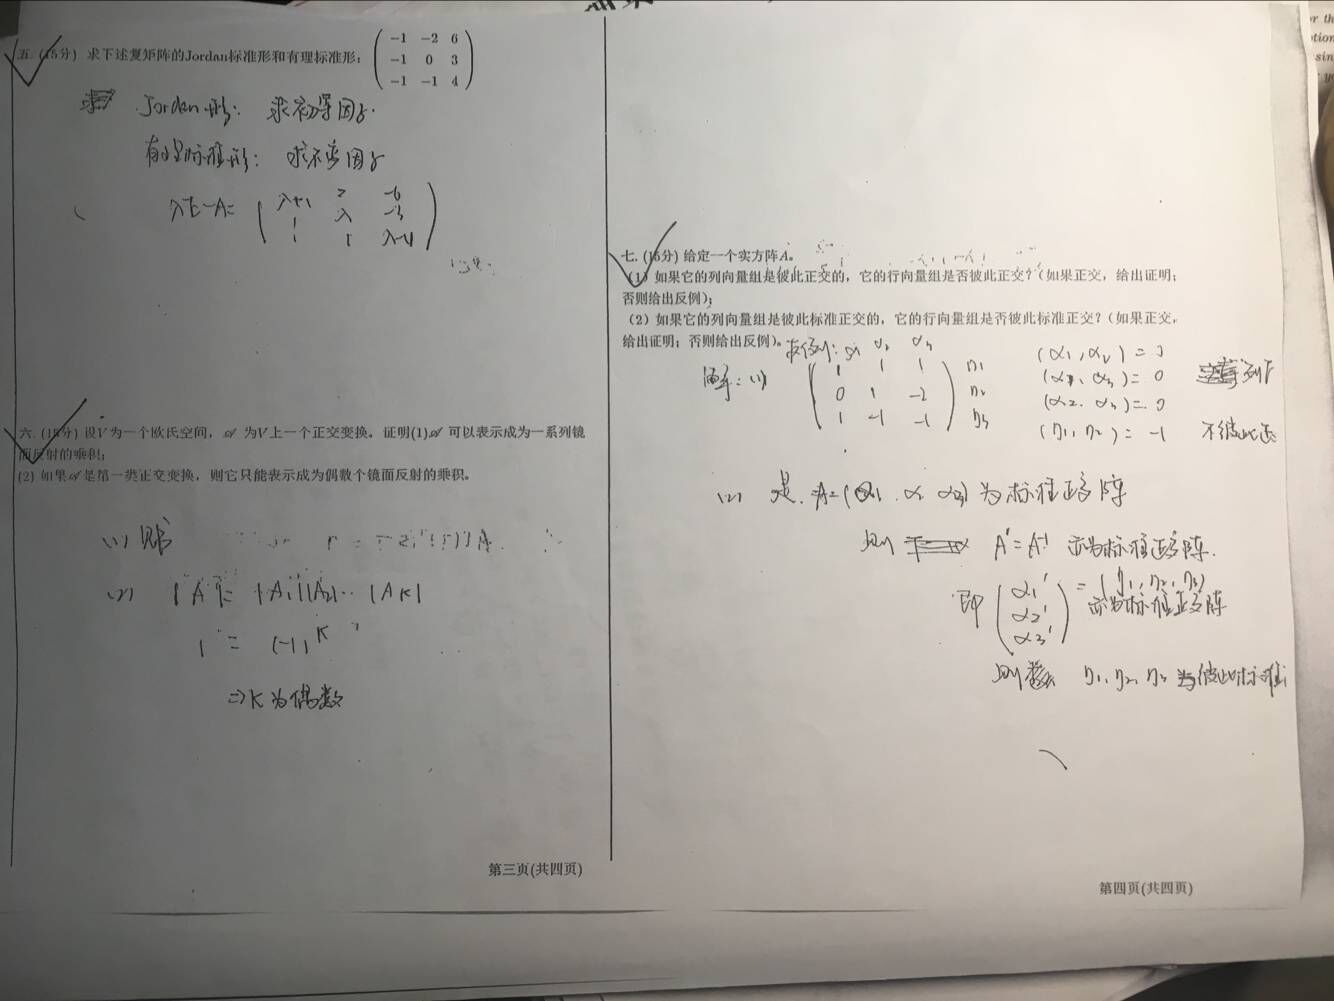 五. (15分) 求下述复矩阵的Jordan标准形和有理标准形：
-1 -2 6
-1 0 3
-1 -1 4
Jordan形： 求初等因子.
有理标准形： 求不变因子
λE-A= λ+1 2 -6
1 λ -3
1 1 λ-4
六. (15分) 设V为一个欧氏空间，𝒜 为V上一个正交变换。证明(1)𝒜 可以表示成为一系列镜
面反射的乘积；
(2) 如果𝒜是第一类正交变换，则它只能表示成为偶数个镜面反射的乘积。
(1)
(2) |A|= |A1||A2|·· |Ak|
1 = (-1)^k
⇒k为偶数
第三页(共四页)
七. (15分) 给定一个实方阵A。
（1）如果它的列向量组是彼此正交的，它的行向量组是否彼此正交？（如果正交，给出证明；
否则给出反例）；
（2）如果它的列向量组是彼此标准正交的，它的行向量组是否彼此标准正交？（如果正交，
给出证明；否则给出反例）。
α1 α2 α3
(1) 1 1 1 η1
0 1 -2 η2
1 -1 -1 η3
(α1, α2) = 0
(α1, α3) = 0
(α2, α3) = 0
(η1, η2) = -1 不彼此正
(2) 是. A=(α1 α2 α3) 为标准正交阵
则 A'=A⁻¹ 亦为标准正交阵.
即 α1' = (η1, η2, η3)
α2' 亦为标准正交阵
α3'
则 η1, η2, η3 为彼此标准
第四页(共四页)